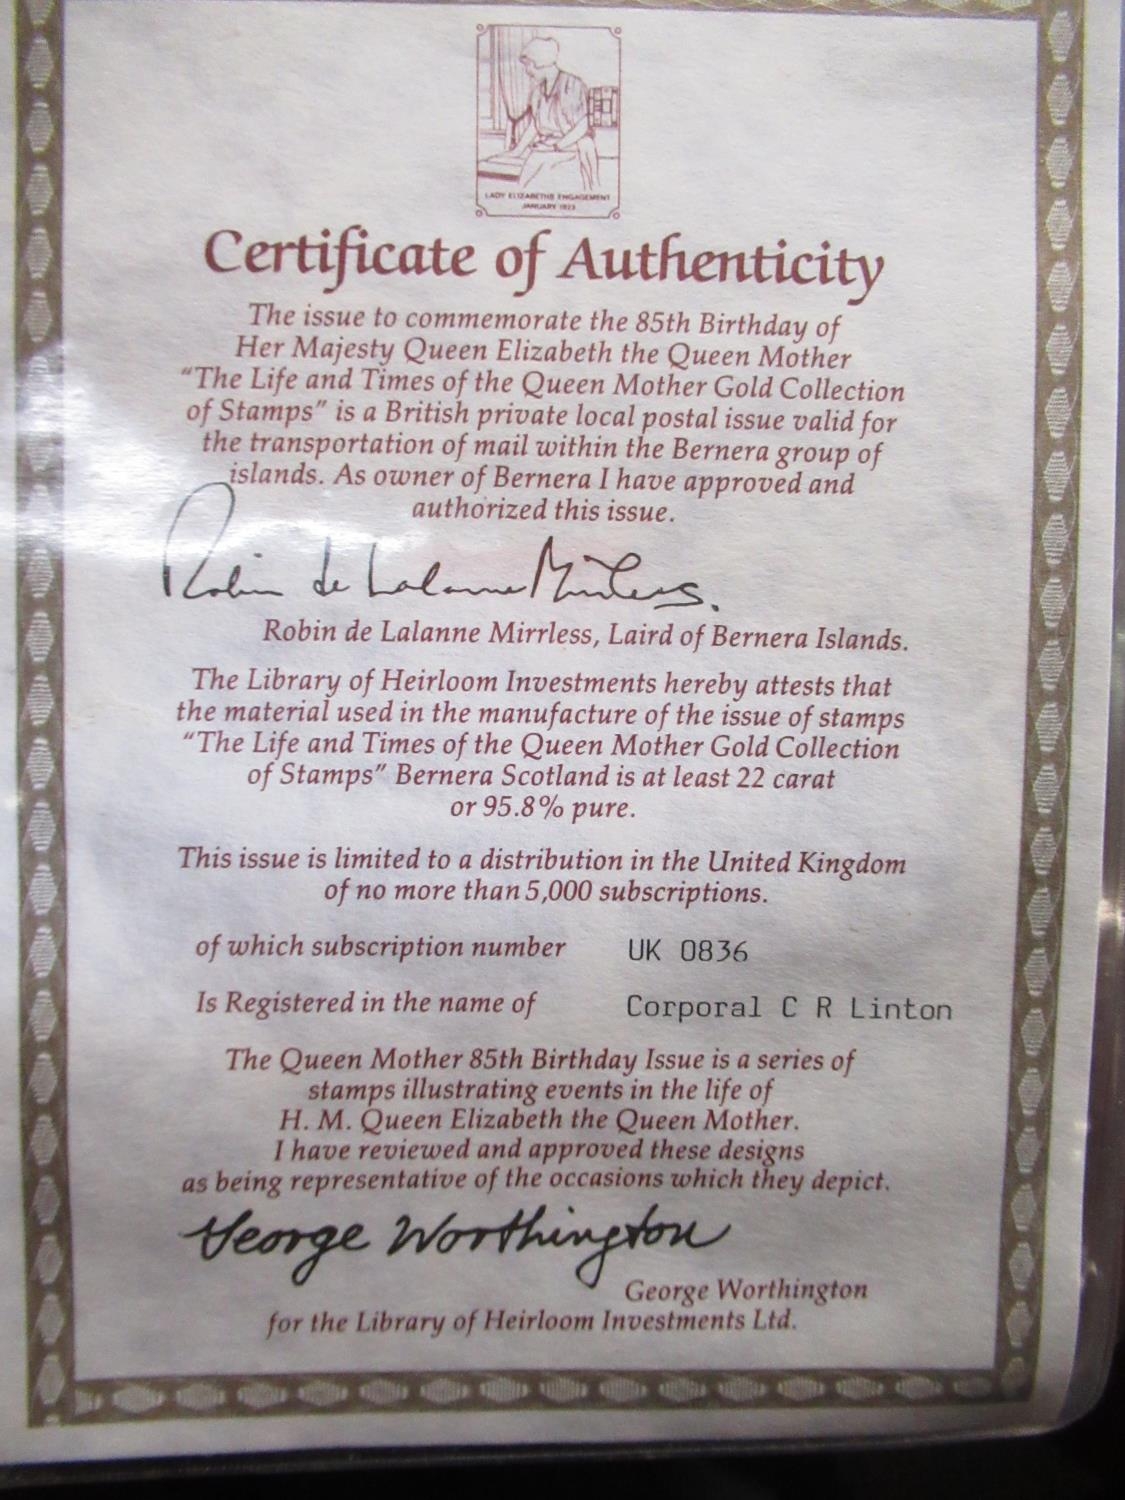 LADY ELIZABETHS ENGAGEMENT
JANUARY 1923
Certificate of Authenticity
The issue to commemorate the 85th Birthday of
Her Majesty Queen Elizabeth the Queen Mother
"The Life and Times of the Queen Mother Gold Collection
of Stamps" is a British private local postal issue valid for
the transportation of mail within the Bernera group of
islands. As owner of Bernera I have approved and
authorized this issue.
Robin de Lalanne Mirrlees.
Robin de Lalanne Mirrless, Laird of Bernera Islands.
The Library of Heirloom Investments hereby attests that
the material used in the manufacture of the issue of stamps
"The Life and Times of the Queen Mother Gold Collection
of Stamps" Bernera Scotland is at least 22 carat
or 95.8% pure.
This issue is limited to a distribution in the United Kingdom
of no more than 5,000 subscriptions.
of which subscription number UK 0836
Is Registered in the name of Corporal C R Linton
The Queen Mother 85th Birthday Issue is a series of
stamps illustrating events in the life of
H. M. Queen Elizabeth the Queen Mother.
I have reviewed and approved these designs
as being representative of the occasions which they depict.
George Worthington
George Worthington
for the Library of Heirloom Investments Ltd.